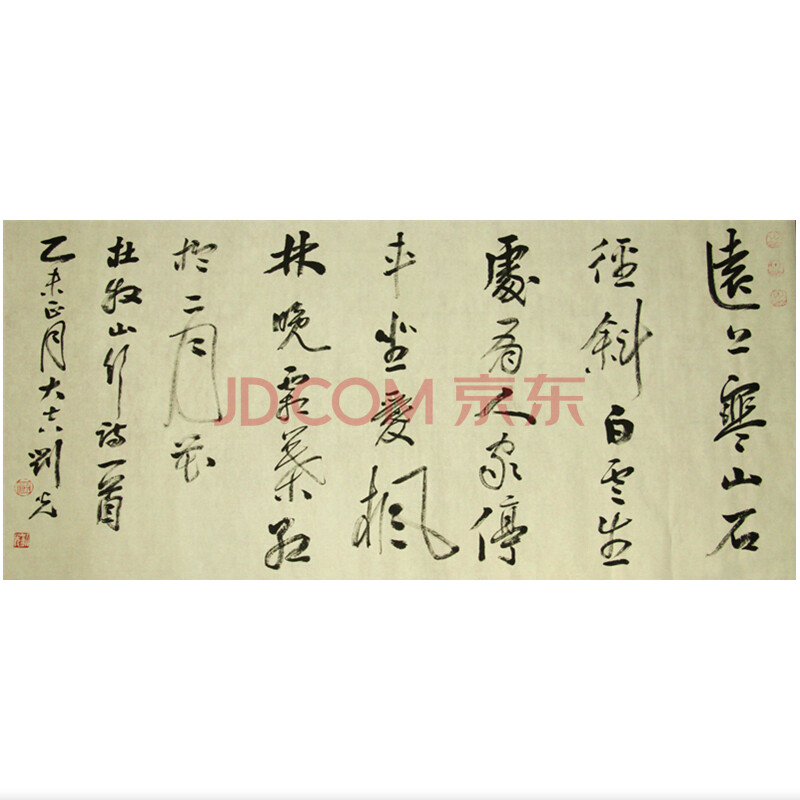 遠上寒山石
徑斜白雲生
處有人家停
車坐愛楓
林晚霜葉紅
於二月花
杜牧山行詩一首
乙未正月大吉劉光
JD.COM 京东